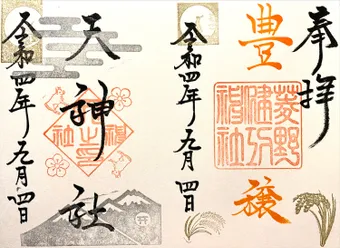 奉拝
豊穣
菱野
健功
神社
令和四年九月四日
天神社
令和四年九月四日